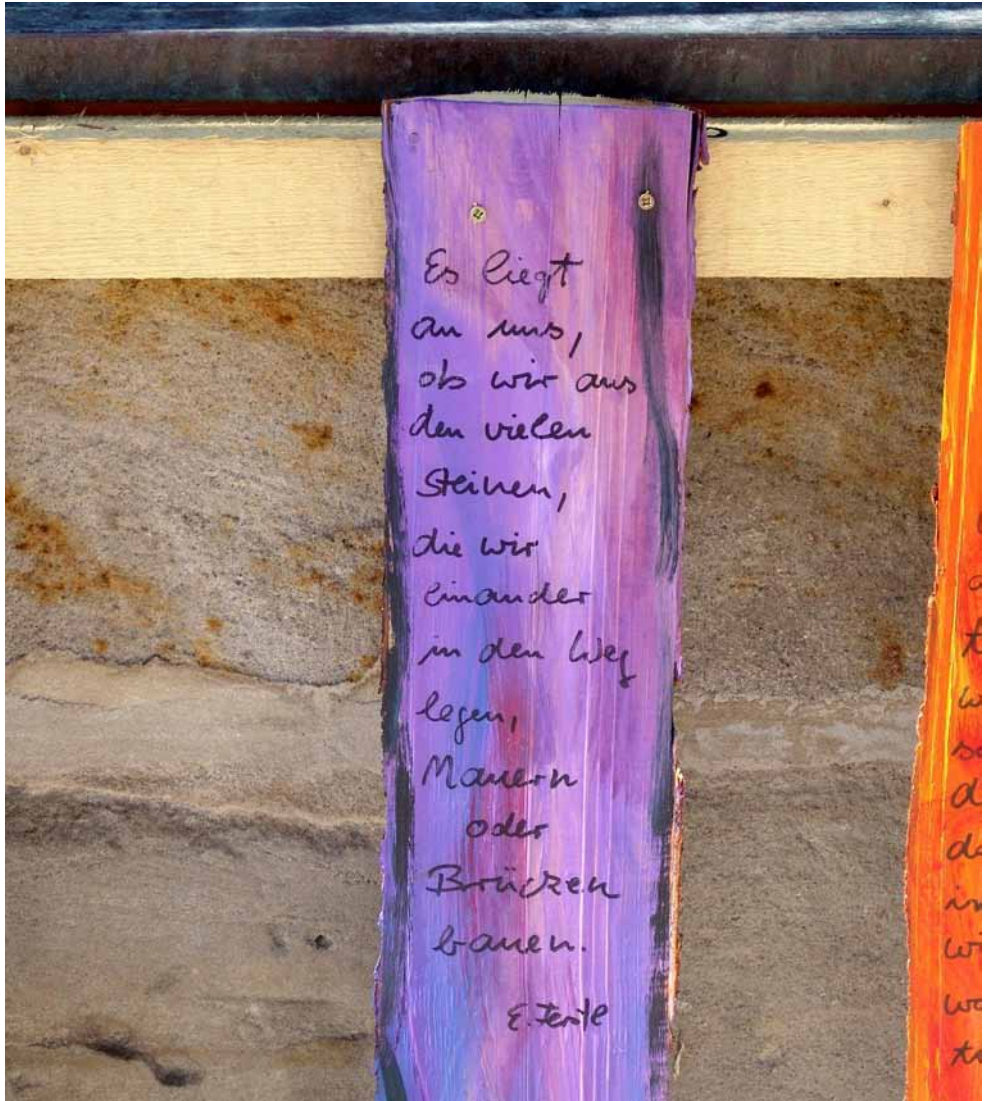 Es liegt
an uns,
ob wir aus
den vielen
Steinen,
die wir
einander
in den Weg
legen,
Mauern
oder
Brücken
bauen.
E. Ferstl